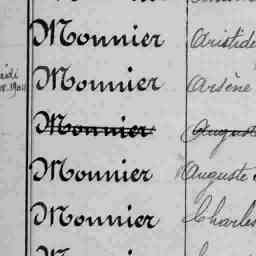 Monnier Aristide
Monnier Arsène
Monnier August
Monnier Auguste
Monnier Charles